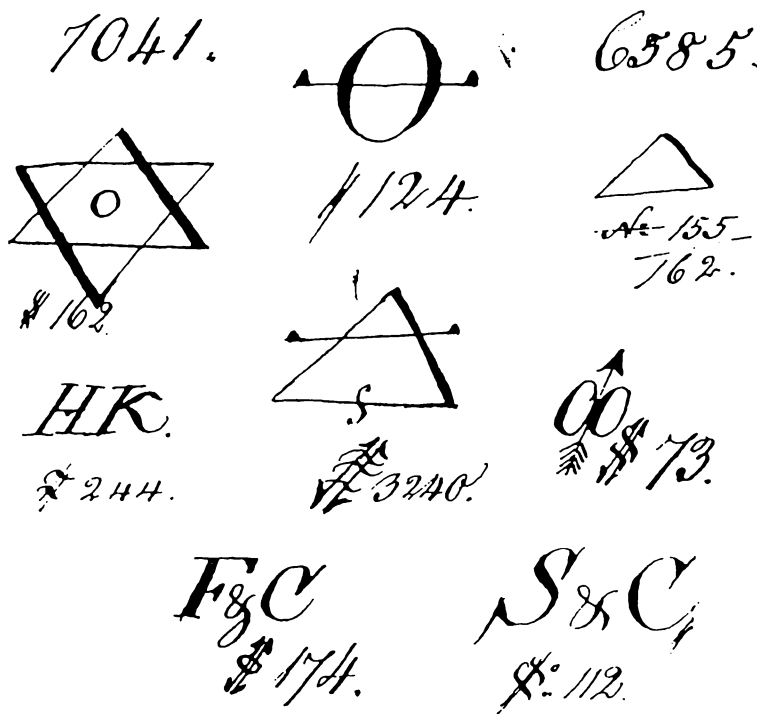 7041.
O
6585.
O
124.
No 155-
162.
162
S
HK.
244.
3240.
OO
73.
F&C
174.
S&C,
112.